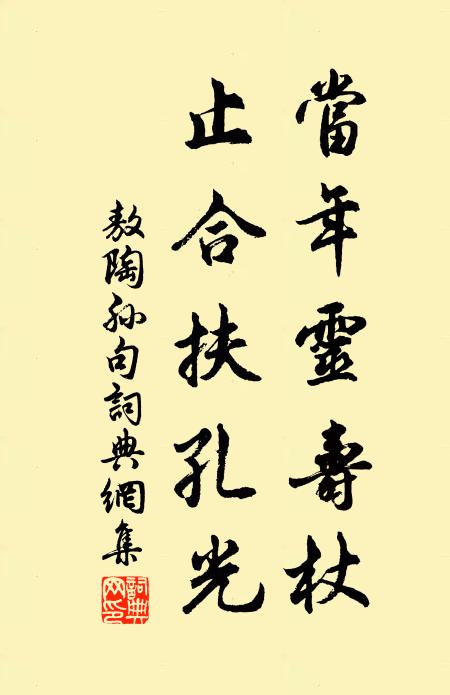 當年靈壽杖
止合扶孔光
敖陶孙句詞典網集
詞典網印